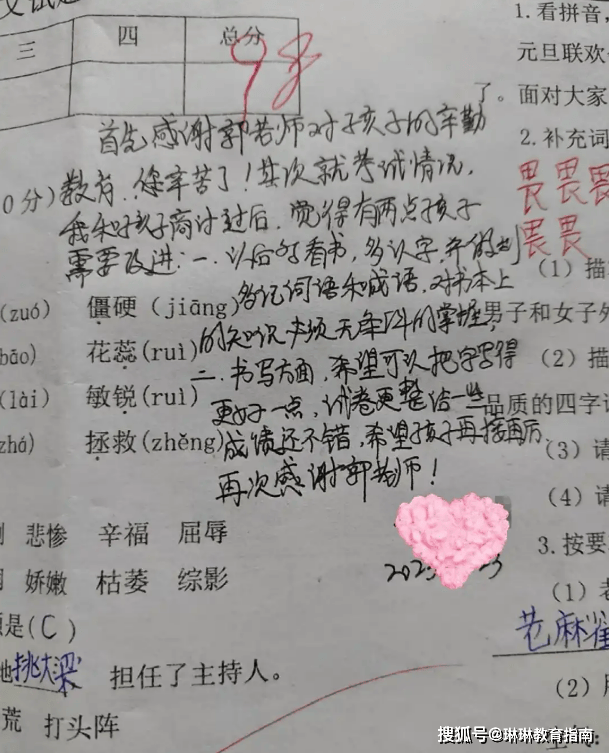 三 四 总分
98
首先感谢郭老师对孩子的辛勤
0分)教育，您辛苦了！其次就考试情况，
我和孩子商讨过后，觉得有两点孩子
需要改进：一、以后多看书，多认字，并做到
多记词语和成语，对书本上
的知识必须无条件的掌握，
二、书写方面，希望可以把字写得
更好一点，试卷更整洁一些
成绩还不错，希望孩子再接再厉
再次感谢郭老师！
(zuó) 僵硬 (jiāng)
bāo) 花蕊(ruì)
(lài) 敏锐(ruì)
zhá) 拯救(zhěng)
悲惨 辛福 屈辱
娇嫩 枯萎 综影
是(C)
他挑大梁 担任了主持人。
荒 打头阵
1.看拼音，
元旦联欢
了。面对大家
2.补充词
畏畏畏
畏畏
(1) 描
男子和女子外
(2) 描
品质的四字词
(3) 请
(4) 请
3.按要
(1) 老
老麻雀
(2) 用
搜狐号@琳琳教育指南